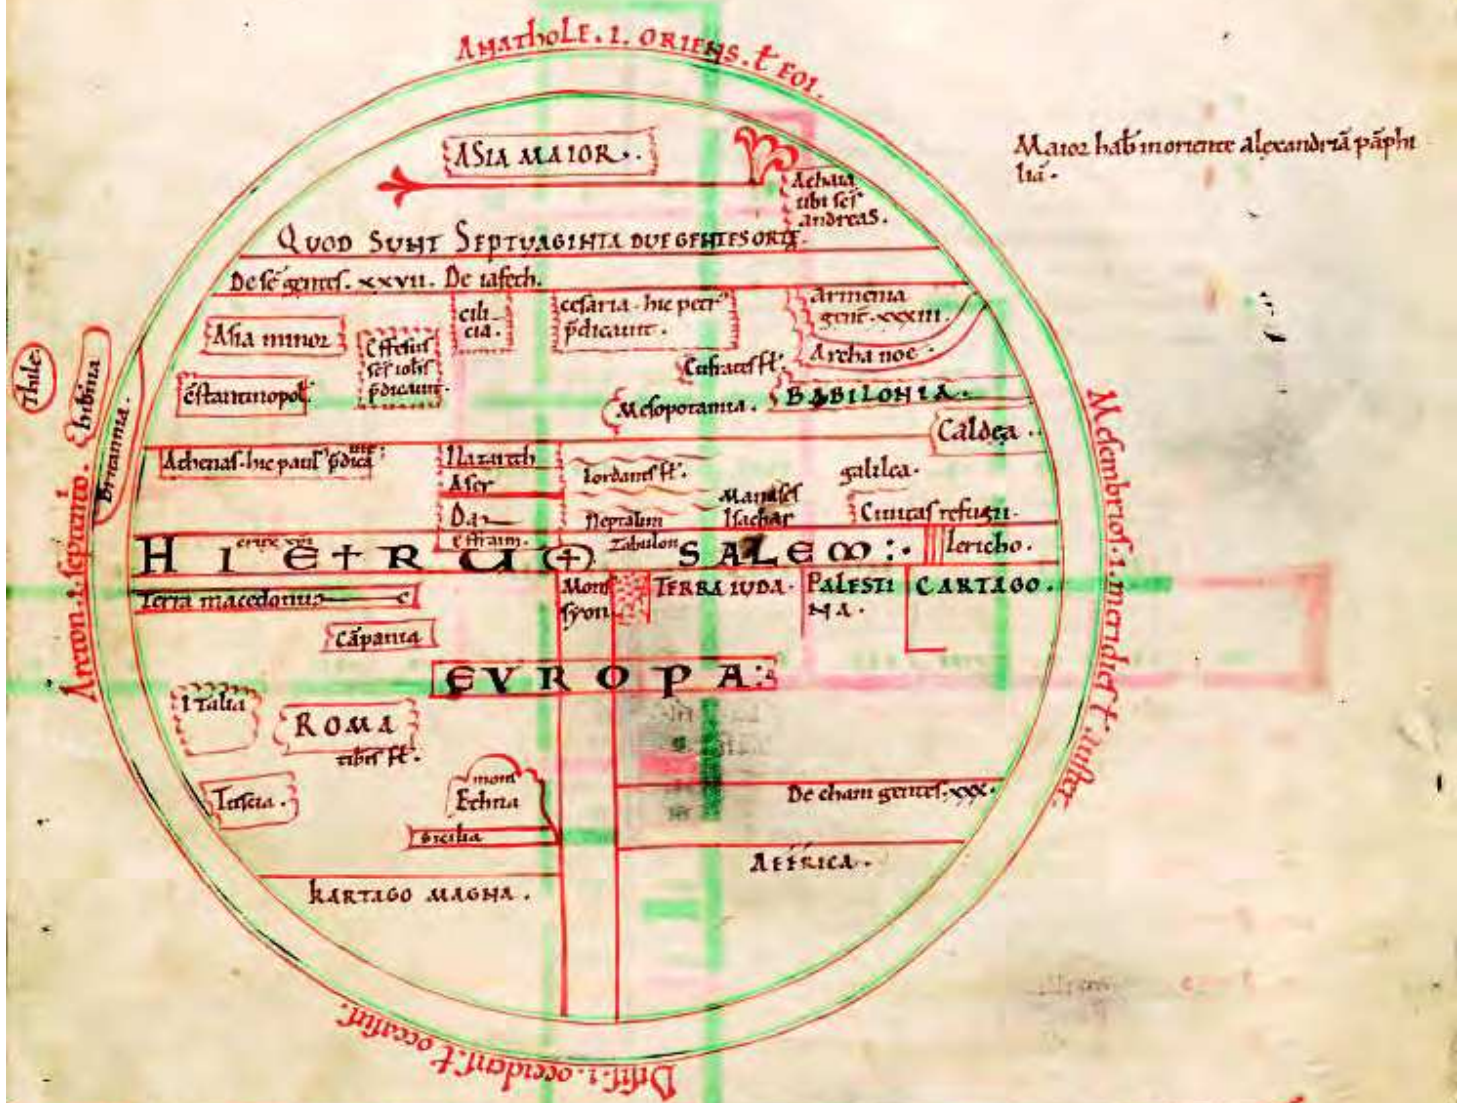 ANATHOLE . I . ORIENS . ł EOI .
ASIA MAIOR .
Maior hab& in oriente alexandriā pāphi
liā .
Achaia
ubi scſ
andreas .
QUOD SUNT SEPTUAGINTA DUE GENTES ORTE .
De sē gentes . xxvii . De iafeth .
Asia minor
Effesus
scſ iohſ
p̄dicauit .
cili
cia .
cesaria . hic petr'
p̄dicauit .
armenia
gent . xxxiii .
Archa noe .
Thile
hibina
Britannia .
c̄stantinopoł .
Eufrates fł .
Mesopotamia .
BABILONIA .
Caldea .
Achenas . hic paul'
Nazareth
Aser
Dan
effraim .
Iordanis fł .
Neptalim
Zabulon
Manases
Isachar
galilea .
Ciuitas refugii .
HIERUSALEM :.
Iericho .
Terra macedonum
Cāpania
Mons
syon
TERRA IUDA .
PALESTI
NA .
CARTAGO .
EUROPA :
Italia
ROMA
tibris fł .
Tuscia .
mons
Ethna
sicilia
De cham gentes . xxx .
AFFRICA .
KARTAGO MAGNA .
Arcton . i . septentrio .
Mesembrios . i . meridies ł auster .
Disis . i . occidens ł occasus .